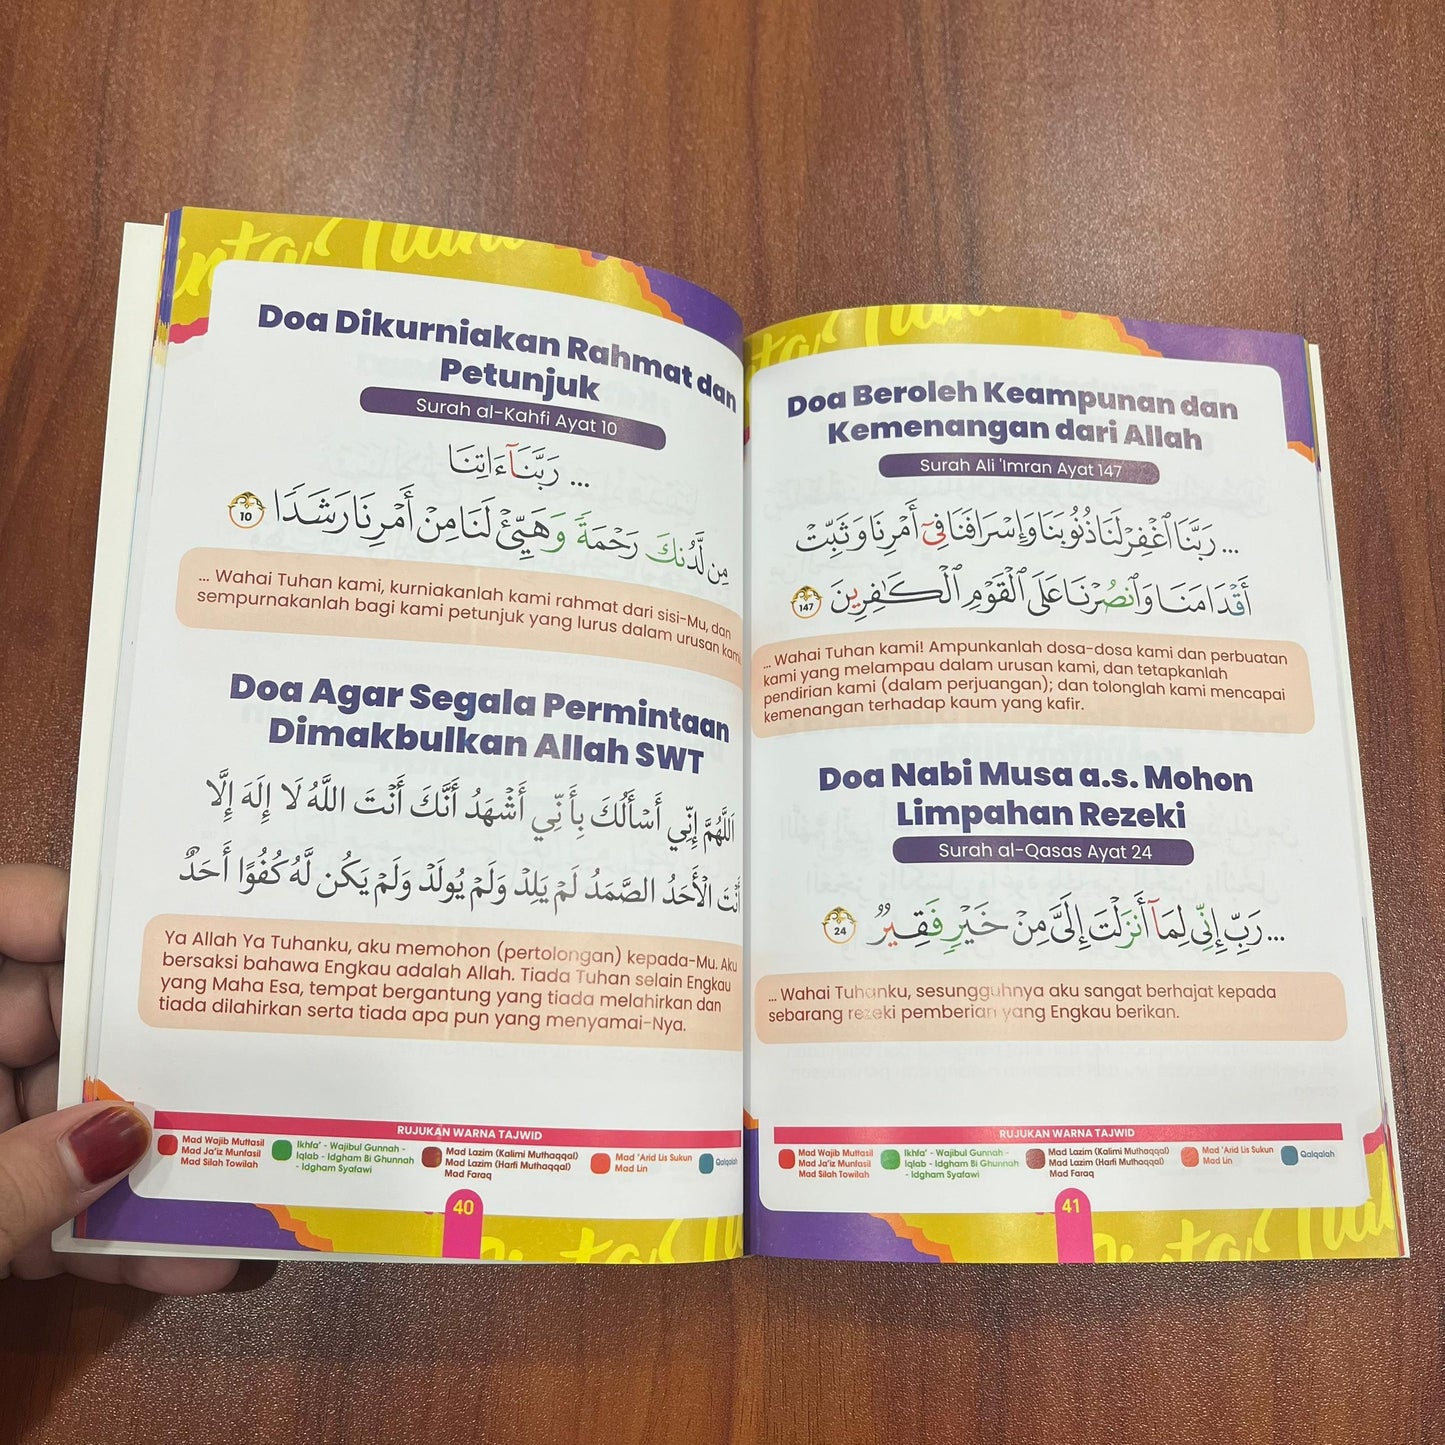 Doa Dikurniakan Rahmat dan
Petunjuk
Surah al-Kahfi Ayat 10
... رَبَّنَآ ءَاتِنَا
مِن لَّدُنكَ رَحْمَةً وَهَيِّئْ لَنَا مِنْ أَمْرِنَا رَشَدًا 10
... Wahai Tuhan kami, kurniakanlah kami rahmat dari sisi-Mu, dan
sempurnakanlah bagi kami petunjuk yang lurus dalam urusan kami
Doa Agar Segala Permintaan
Dimakbulkan Allah SWT
اَللَّهُمَّ إِنِّي أَسْأَلُكَ بِأَنِّي أَشْهَدُ أَنَّكَ أَنْتَ اللَّهُ لَا إِلَهَ إِلَّا
أَنْتَ الْأَحَدُ الصَّمَدُ لَمْ يَلِدْ وَلَمْ يُولَدْ وَلَمْ يَكُن لَّهُ كُفُوًا أَحَدٌ
Ya Allah Ya Tuhanku, aku memohon (pertolongan) kepada-Mu. Aku
bersaksi bahawa Engkau adalah Allah. Tiada Tuhan selain Engkau
yang Maha Esa, tempat bergantung yang tiada melahirkan dan
tiada dilahirkan serta tiada apa pun yang menyamai-Nya.
RUJUKAN WARNA TAJWID
Mad Wajib Muttasil
Mad Ja'iz Munfasil
Mad Silah Towilah
Ikhfa' - Wajibul Gunnah -
Iqlab - Idgham Bi Ghunnah
- Idgham Syafawi
Mad Lazim (Kalimi Muthaqqal)
Mad Lazim (Harfi Muthaqqal)
Mad Faraq
Mad 'Arid Lis Sukun
Mad Lin
Qalqalah
40
Doa Beroleh Keampunan dan
Kemenangan dari Allah
Surah Ali 'Imran Ayat 147
... رَبَّنَا ٱغْفِرْ لَنَا ذُنُوبَنَا وَإِسْرَافَنَا فِىٓ أَمْرِنَا وَثَبِّتْ
أَقْدَامَنَا وَٱنصُرْنَا عَلَى ٱلْقَوْمِ ٱلْكَـٰفِرِينَ 147
... Wahai Tuhan kami! Ampunkanlah dosa-dosa kami dan perbuatan
kami yang melampau dalam urusan kami, dan tetapkanlah
pendirian kami (dalam perjuangan); dan tolonglah kami mencapai
kemenangan terhadap kaum yang kafir.
Doa Nabi Musa a.s. Mohon
Limpahan Rezeki
Surah al-Qasas Ayat 24
... رَبِّ إِنِّى لِمَآ أَنزَلْتَ إِلَىَّ مِنْ خَيْرٍ فَقِيرٌ 24
... Wahai Tuhanku, sesungguhnya aku sangat berhajat kepada
sebarang rezeki pemberian yang Engkau berikan.
RUJUKAN WARNA TAJWID
Mad Wajib Muttasil
Mad Ja'iz Munfasil
Mad Silah Towilah
Ikhfa' - Wajibul Gunnah -
Iqlab - Idgham Bi Ghunnah
- Idgham Syafawi
Mad Lazim (Kalimi Muthaqqal)
Mad Lazim (Harfi Muthaqqal)
Mad Faraq
Mad 'Arid Lis Sukun
Mad Lin
Qalqalah
41